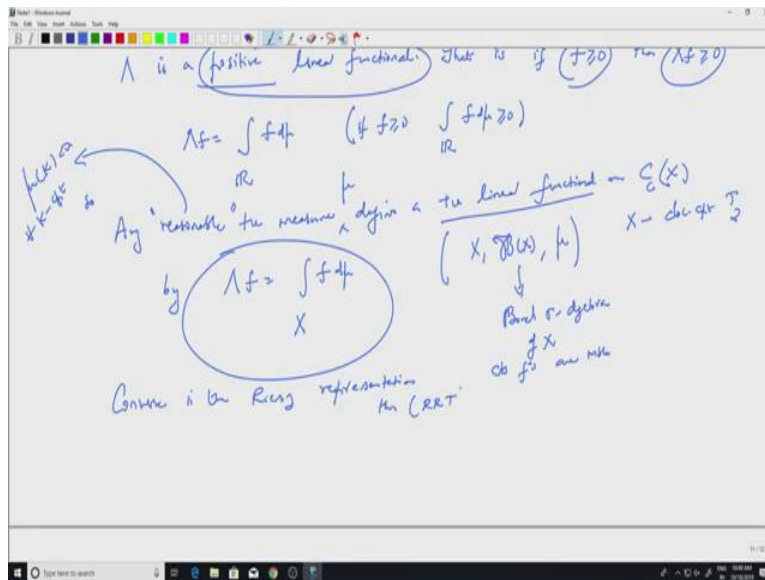 Note1 - Windows Journal
File Edit View Insert Actions Tools Help
Λ is a (positive linear functional. That is if (f≥0) then (Λf≥0)
Λf = ∫ f dμ (if f≥0 ∫ f dμ ≥0)
ℝ ℝ
μ(K)<∞
∀ K-cpt
so Any "reasonable" +ve measure μ defines a +ve linear functional on C_c(X)
X - loc. cpt T_2
by Λf = ∫ f dμ
X
(X, B(X), μ)
Borel σ-algebra
of X
cts f's are mble
Converse is the Riesz representation
thm (RRT
11/12
Type here to search
ENG 10:49 AM